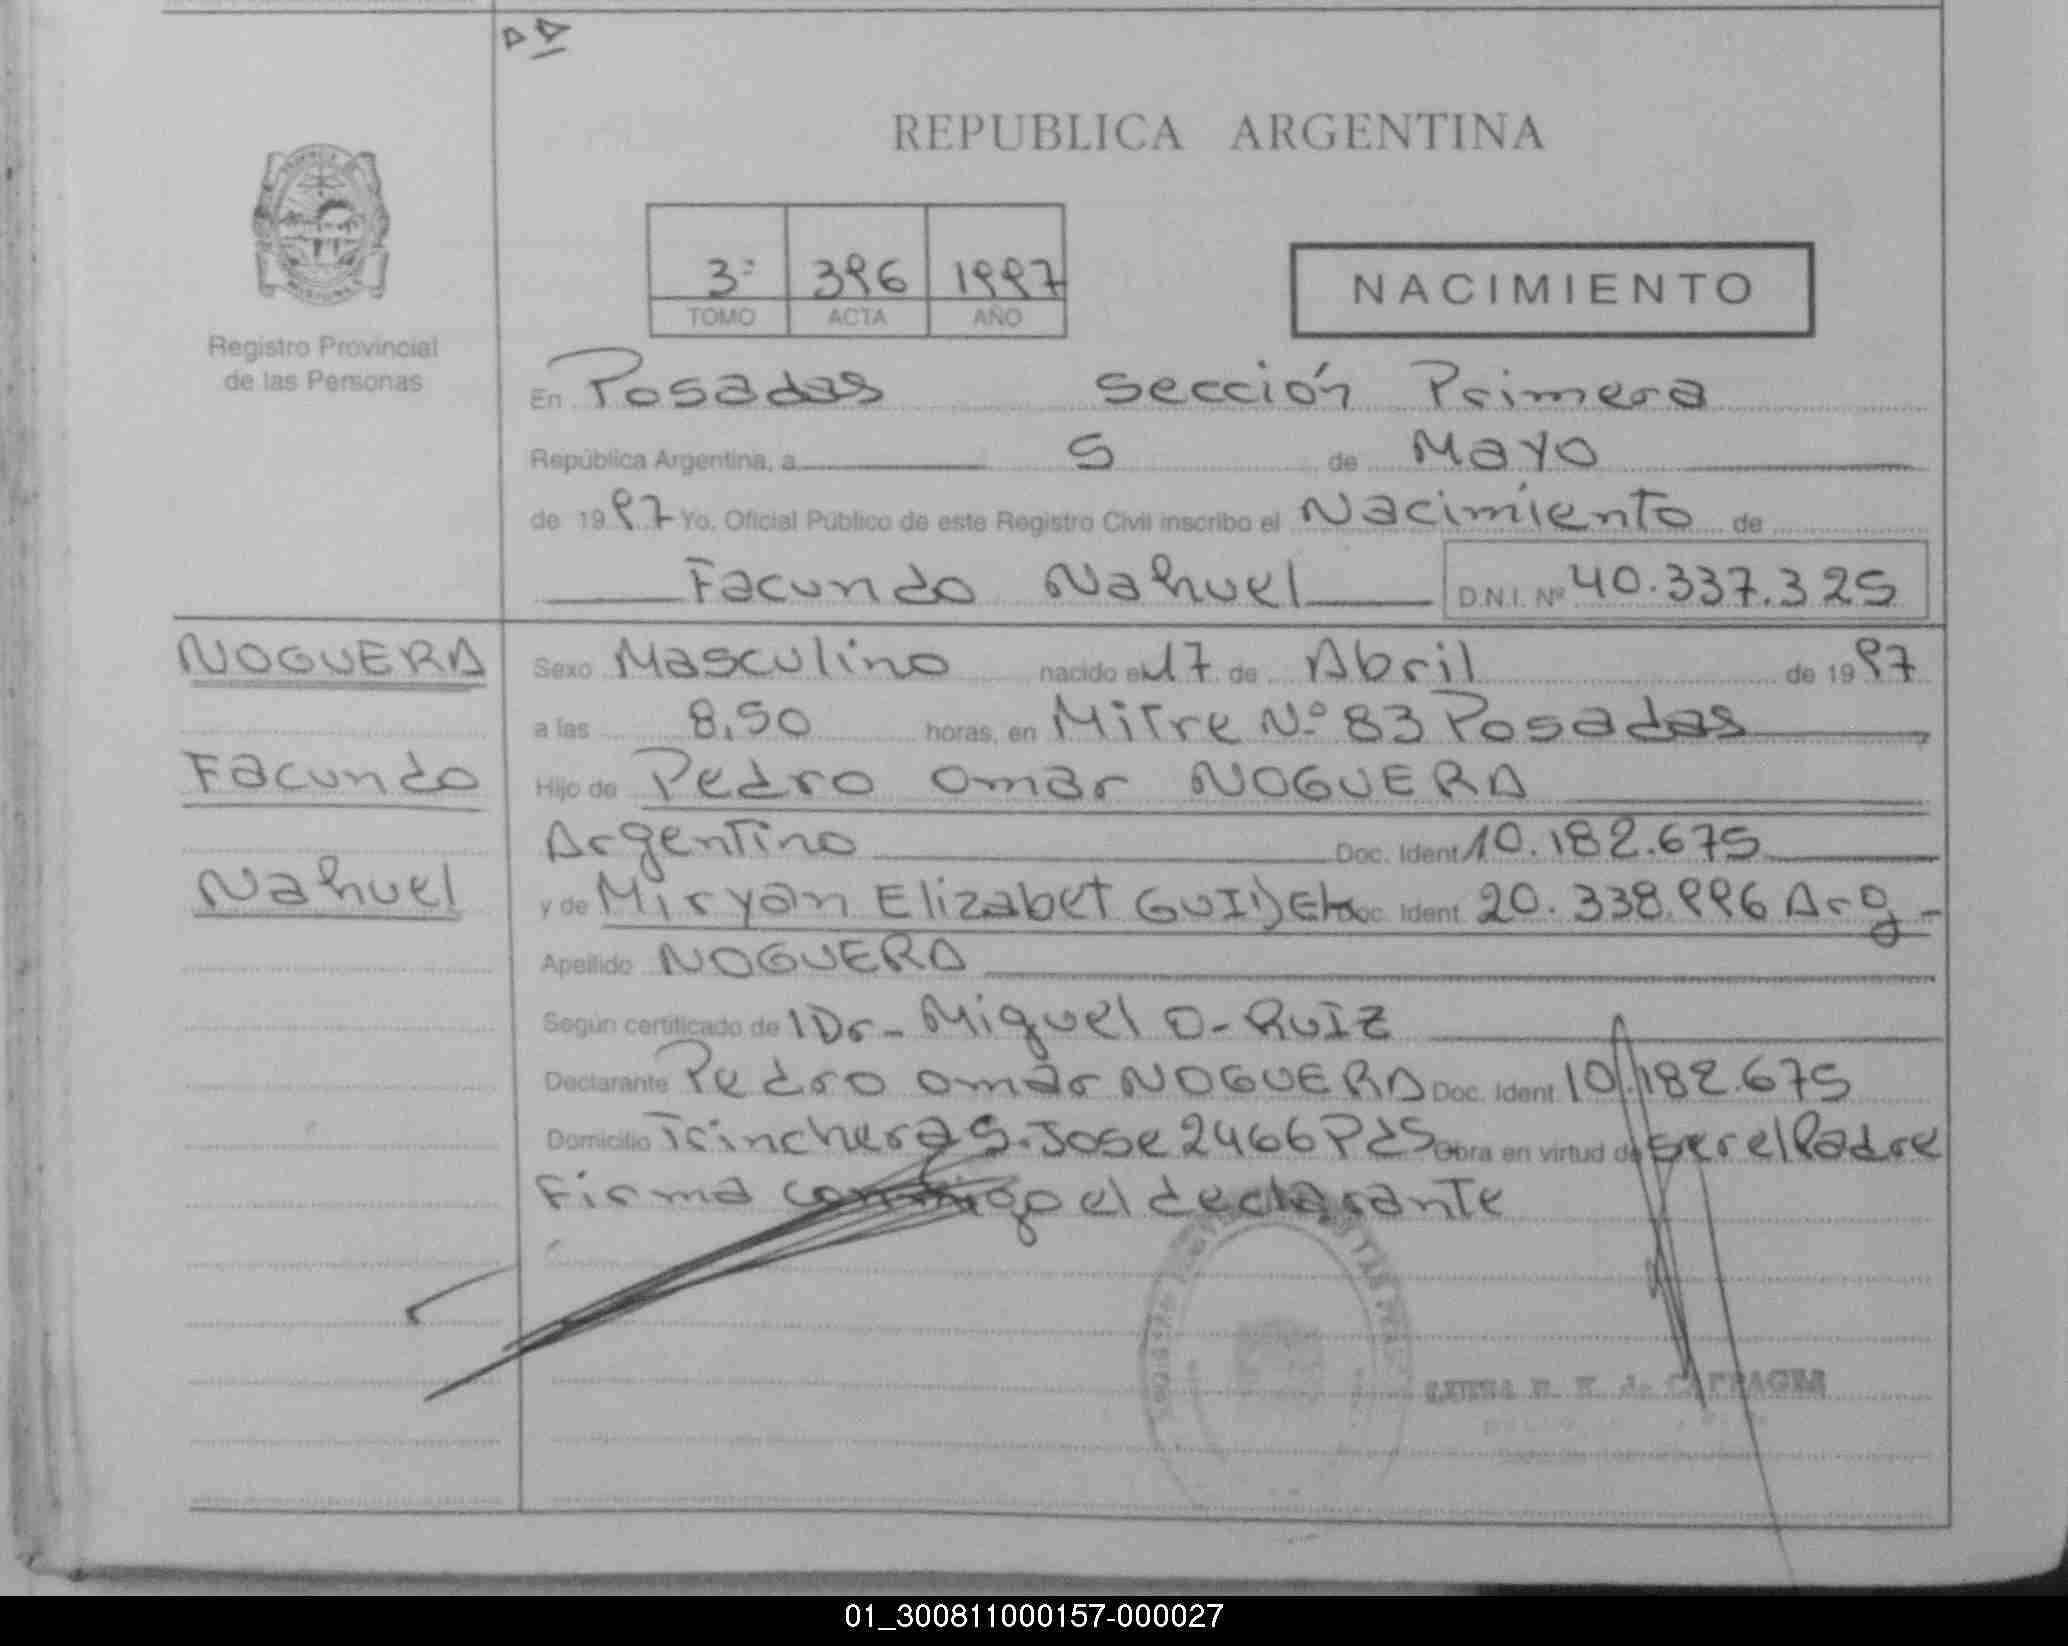 REPUBLICA ARGENTINA
3º 396 1997
TOMO ACTA AÑO
NACIMIENTO
Registro Provincial
de las Personas
En Posadas sección Primera
República Argentina, a 5 de Mayo
de 1997 Yo, Oficial Público de este Registro Civil inscribo el Nacimiento de
Facundo Nahuel D.N.I. Nº 40.337.325
NOGUERA
Facundo
Nahuel
Sexo Masculino nacido el 17 de Abril de 1997
a las 8,50 horas, en Mitre Nº 83 Posadas
Hijo de Pedro Omar NOGUERA
Argentino Doc. Ident 10.182.675
y de Miryan Elizabet Doc. Ident. 20.338.996 Arg -
Apellido NOGUERA
Según certificado de Dr- Miguel O- RUIZ
Declarante Pedro Omar NOGUERA Doc. Ident. 10.182.675
Domicilio Trinchera S. Jose 2466 Pds Obra en virtud de ser el Padre
Firma conmigo el declarante
01_300811000157-000027